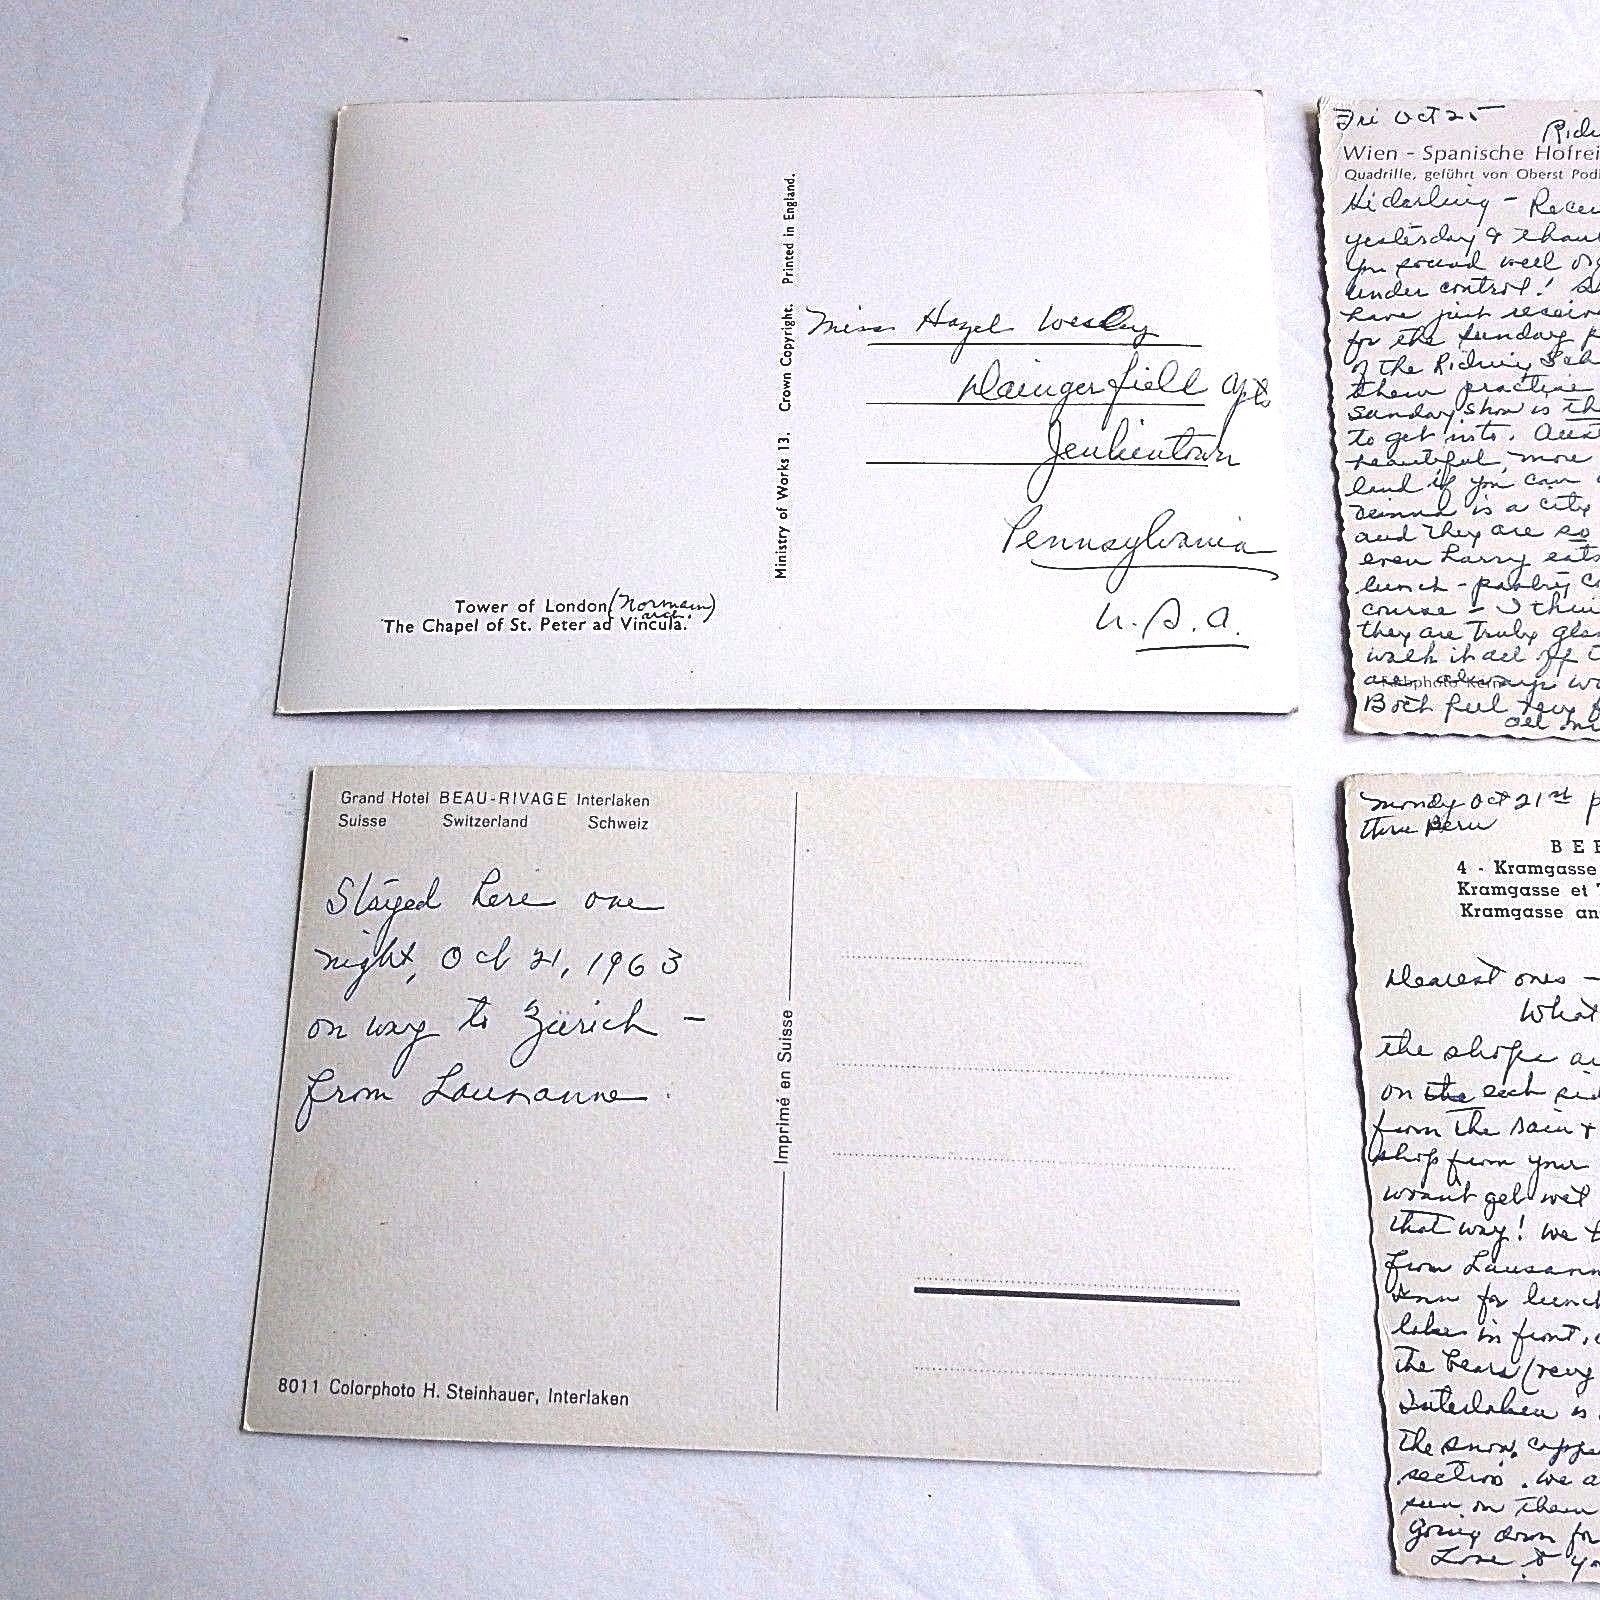 Ministry of Works 13. Crown Copyright. Printed in England.
Miss Hazel Wesley
Daingerfield Apts
Jenkintown
Pennsylvania
U.S.A.
Tower of London (Norman
arch.)
The Chapel of St. Peter ad Vincula.
Fri Oct 25
Wien - Spanische Hofrei
Quadrille, geführt von Oberst Pod
Hi darling -
yesterday &
you sound well
under control!
have just
for the Sunday
of the Riding
them practice
Sunday show is
to get into.
beautiful, more
land if you can
Vienna is a city
and they are so
even Larry eats
lunch - pastry
course - I
they are truly
walk it all off
are always
Both feel
Grand Hotel BEAU-RIVAGE Interlaken
Suisse Switzerland Schweiz
Stayed here one
night, Oct 21, 1963
on way to Zürich -
from Lausanne.
Imprimé en Suisse
8011 Colorphoto H. Steinhauer, Interlaken
Monday Oct 21st
thru Bern
4 - Kramgasse
Kramgasse et
Kramgasse an
Dearest ones -
What
the shops
on the each
from the rain &
shop from your
won't get wet
that way! We
from
Inn for lunch
lake in front,
the bears (very
Interlaken is
the snow
section. We
sun on them
going down for
Love &